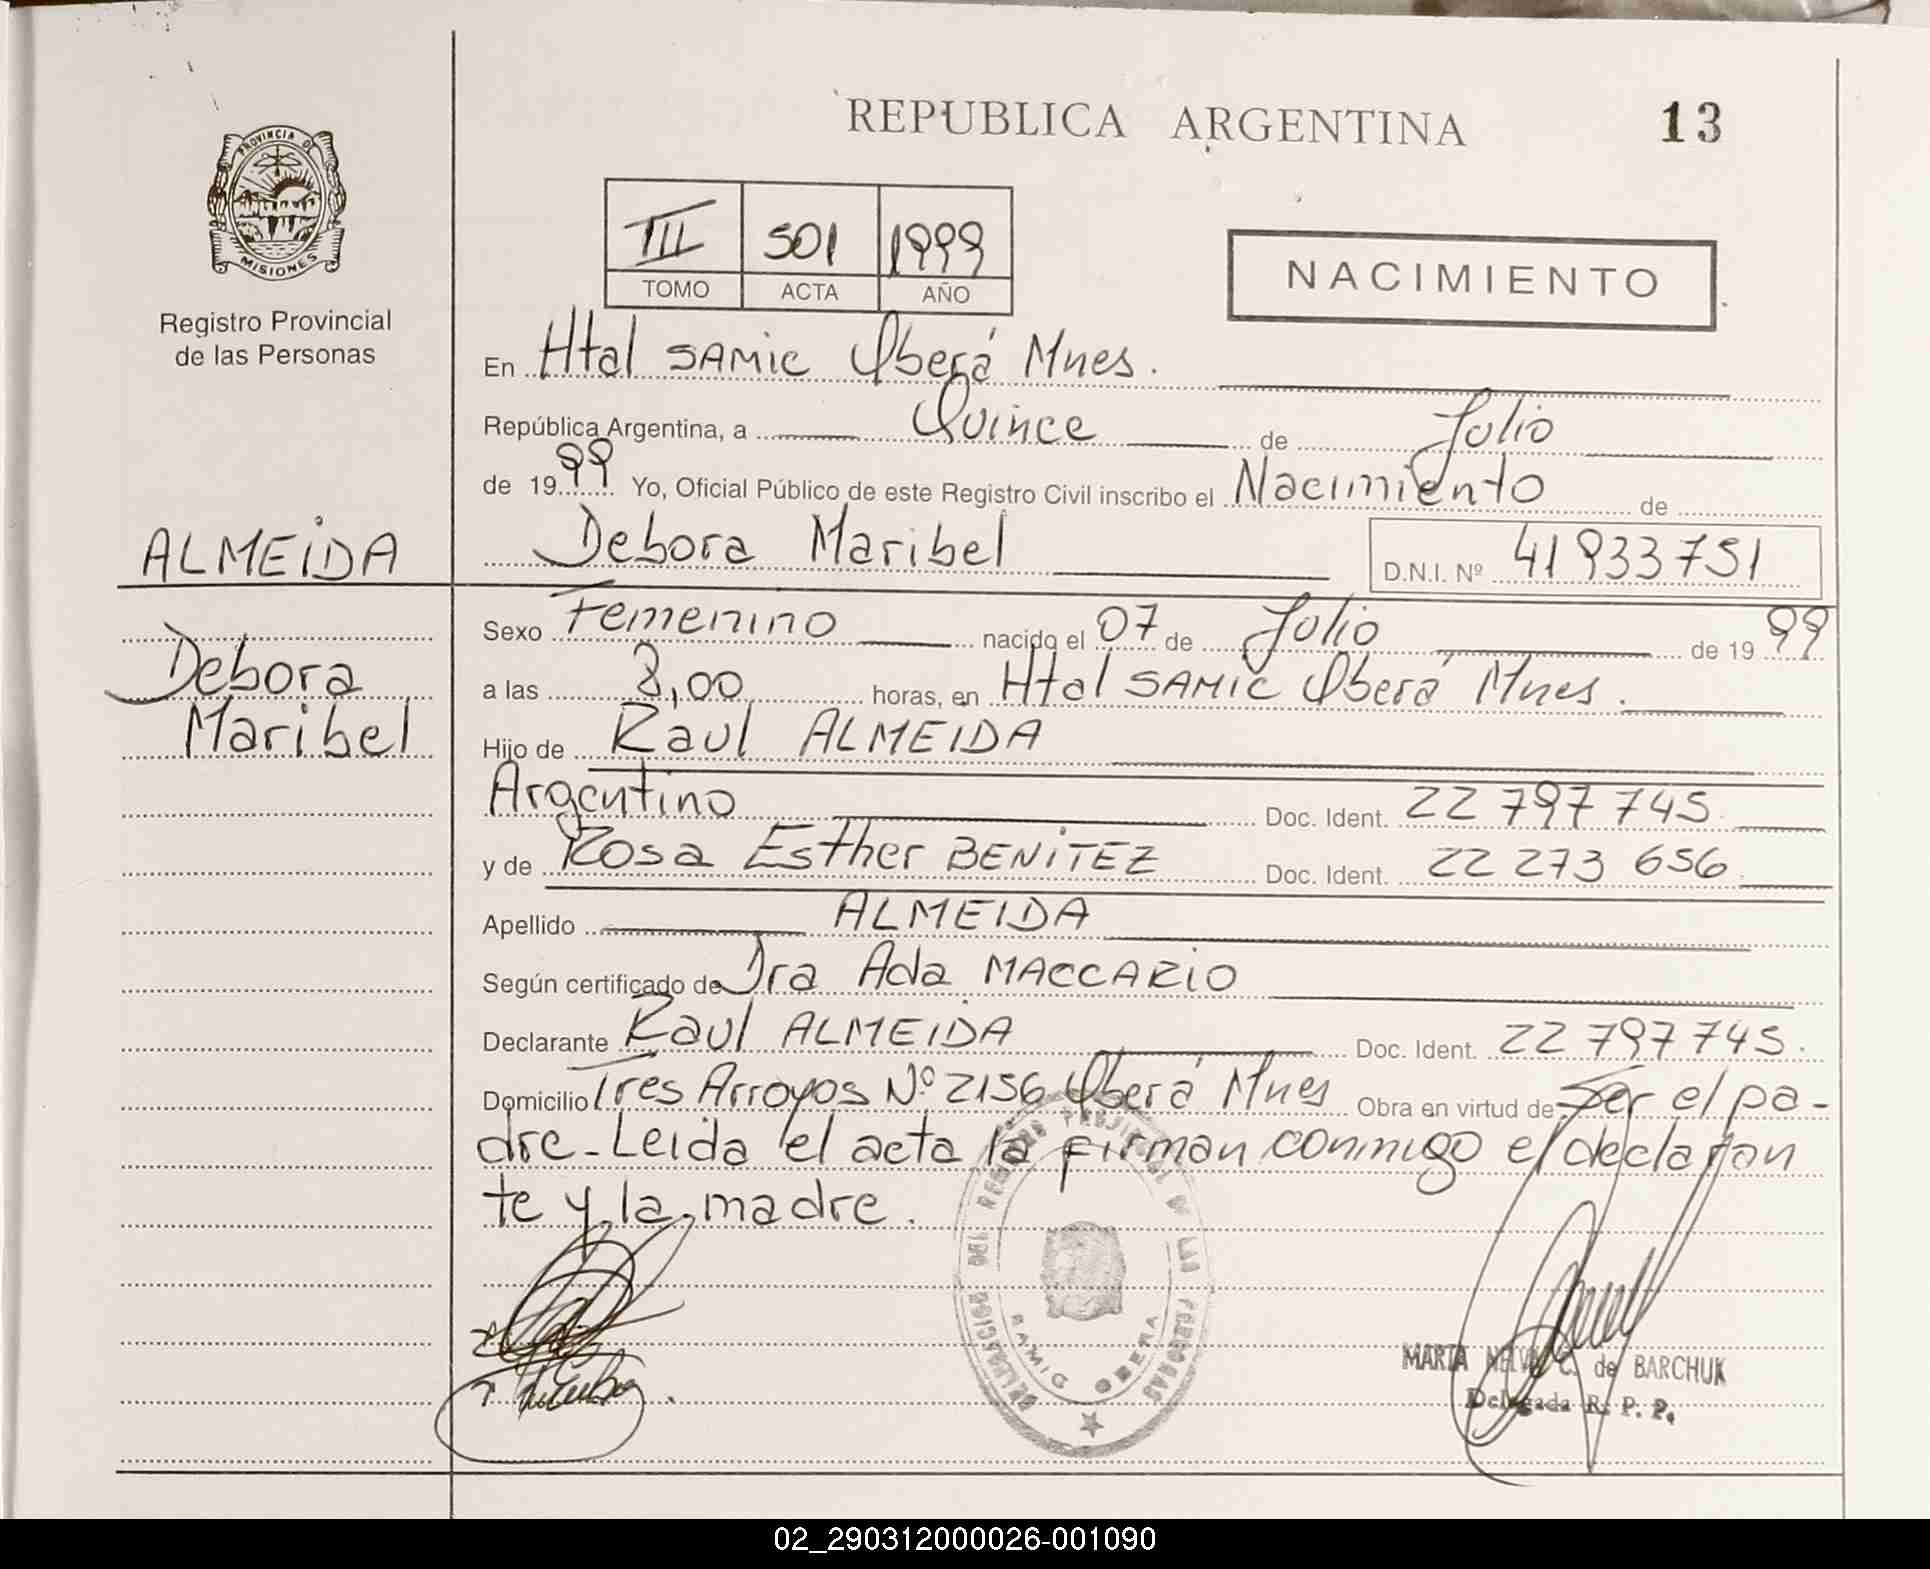 REPUBLICA ARGENTINA 13
PROVINCIA DE
MISIONES
Registro Provincial
de las Personas
III 501 1999
TOMO ACTA AÑO
NACIMIENTO
En Htal SAMIC Oberá Mnes.
República Argentina, a Quince de Julio
de 1999 Yo, Oficial Público de este Registro Civil inscribo el Nacimiento de
Debora Maribel D.N.I. Nº 41933751
ALMEIDA
Debora
Maribel
Sexo Femenino nacido el 07 de Julio de 1999
a las 8,00 horas, en Htal SAMIC Oberá Mnes.
Hijo de Raul ALMEIDA
Argentino Doc. Ident. 22 797 745
y de Rosa Esther BENITEZ Doc. Ident. 22 273 656
Apellido ALMEIDA
Según certificado de Dra Ada MACCARIO
Declarante Raul ALMEIDA Doc. Ident. 22 797 745.
Domicilio Tres Arroyos Nº 2156 Oberá Mnes Obra en virtud de Ser el pa-
dre-Leida el acta la firman conmigo el declaran
te y la madre.
REGISTRO PROVINCIAL DE LAS PERSONAS
SAMIC OBERA
MARTA NELVA C. de BARCHUK
Delegada R. P. P.
02_290312000026-001090